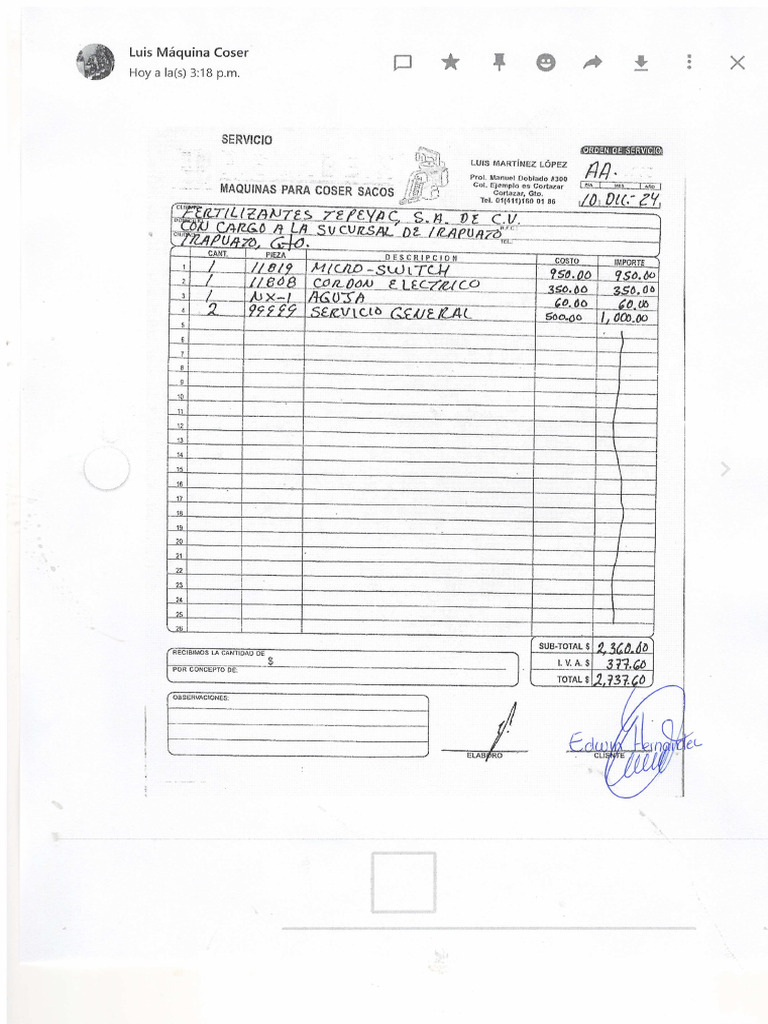 Luis Máquina Coser
Hoy a la(s) 3:18 p.m.
SERVICIO
MAQUINAS PARA COSER SACOS
LUIS MARTÍNEZ LÓPEZ
Prol. Manuel Doblado #300
Col. Ejemplo es Cortazar
Cortazar, Gto.
Tel. 01(411)160 01 86
ORDEN DE SERVICIO
AA.
DIA MES AÑO
10 DIC.- 24
FERTILIZANTES TEPEYAC, S.A. DE C.V.
CON CARGO A LA SUCURSAL DE IRAPUATO
R.F.C.
IRAPUATO, Gto.
TEL.
CANT. PIEZA DESCRIPCION COSTO IMPORTE
1 1 11819 MICRO-SWITCH 950.00 950.00
2 1 11808 CORDON ELECTRICO 350.00 350.00
3 1 NX-1 AGUJA 60.00 60.00
4 2 99999 SERVICIO GENERAL 500.00 1,000.00
5
6
7
8
9
10
11
12
13
14
15
16
17
18
19
20
21
22
23
24
25
26
RECIBIMOS LA CANTIDAD DE
$
POR CONCEPTO DE:
SUB-TOTAL $ 2,360.00
I. V. A. $ 377.60
TOTAL $ 2,737.60
OBSERVACIONES:
ELABORO
Edwyn Hernandez
CLIENTE